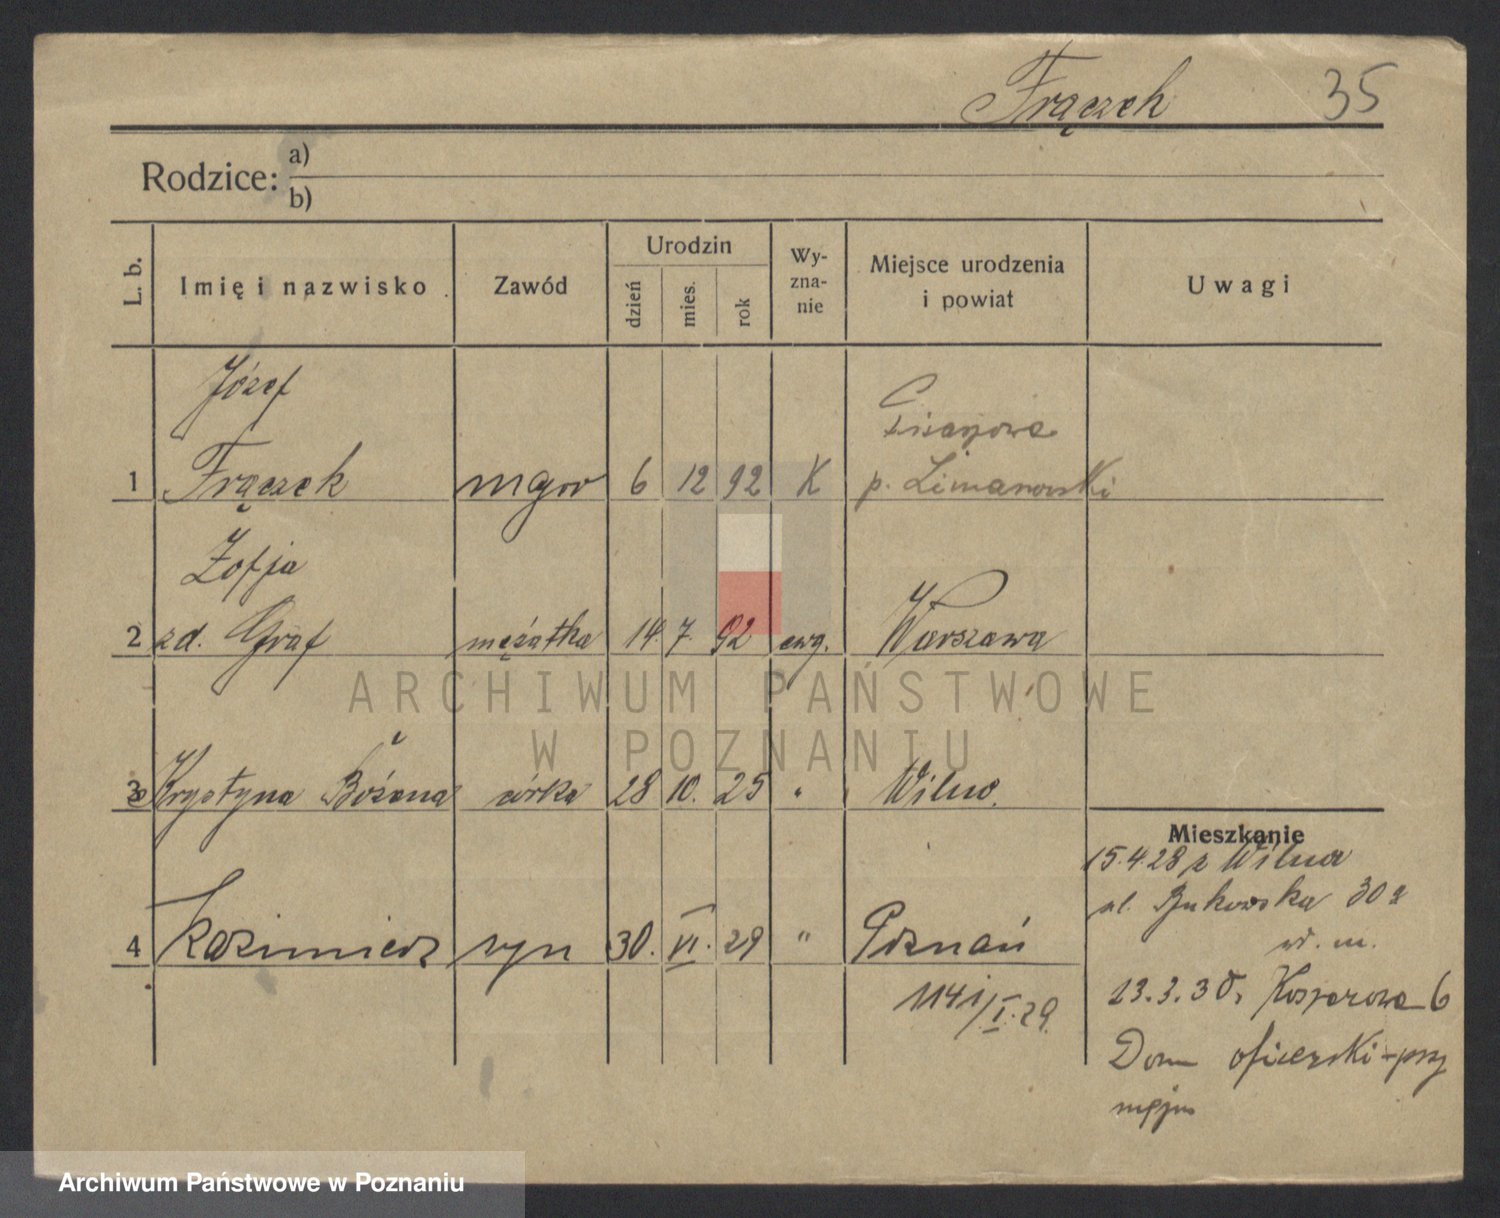 Frączek 35
Rodzice: a)
b)
L. b. Imię i nazwisko Zawód Urodzin dzień mies. rok Wy-zna-nie Miejsce urodzenia i powiat Uwagi
Józef
1 Frączek mjor 6 12 92 K p. Limanowski
Zofja
2 zd. Graf mężatka 14. 7. 92 ewg. Warszawa
ARCHIWUM PAŃSTWOWE
W POZNANIU
3 Krystyna Bożena córka 28 10. 25 " Wilno.
Mieszkanie
15.4.28 z Wilna
ul. Bukowska 30
4 Kazimierz syn 30. VI. 29 " Poznań
w. m.
13.3.30. Koszarowa 6
Dom oficerski - przy
Archiwum Państwowe w Poznaniu